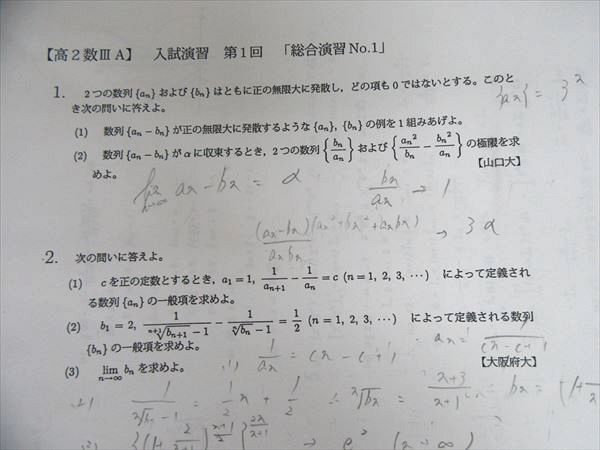 【高2数ⅢA】 入試演習 第1回 「総合演習No.1」
1. 2つの数列{aₙ}および{bₙ}はともに正の無限大に発散し，どの項も0ではないとする。このと
き次の問いに答えよ。
(1) 数列{aₙ－bₙ}が正の無限大に発散するような{aₙ}, {bₙ}の例を1組みあげよ。
(2) 数列{aₙ－bₙ}がαに収束するとき，2つの数列{bₙ/aₙ}および{aₙ²/bₙ－bₙ²/aₙ}の極限を求
めよ。 【山口大】
lim n→∞ aₙ－bₙ = α bₙ/aₙ → 1
(aₙ-bₙ)(aₙ²+bₙ²+aₙbₙ)/aₙbₙ → 3α
2. 次の問いに答えよ。
(1) cを正の定数とするとき，a₁=1, 1/aₙ₊₁－1/aₙ=c (n=1, 2, 3, ⋯) によって定義され
る数列{aₙ}の一般項を求めよ。
(2) b₁=2, 1/(ⁿ⁺¹√bₙ₊₁－1)－1/(ⁿ√bₙ－1)=1/2 (n=1, 2, 3, ⋯) によって定義される数列
{bₙ}の一般項を求めよ。
(3) lim n→∞ bₙを求めよ。 【大阪府大】
(1) 1/aₙ = cn－c+1 ∴ aₙ = 1/(cn－c+1)
(2) 1/(ⁿ√bₙ－1) = 1/2 n + 1/2 ∴ ⁿ√bₙ = (n+3)/(n+1) ∴ bₙ =
→ e² (n→∞)